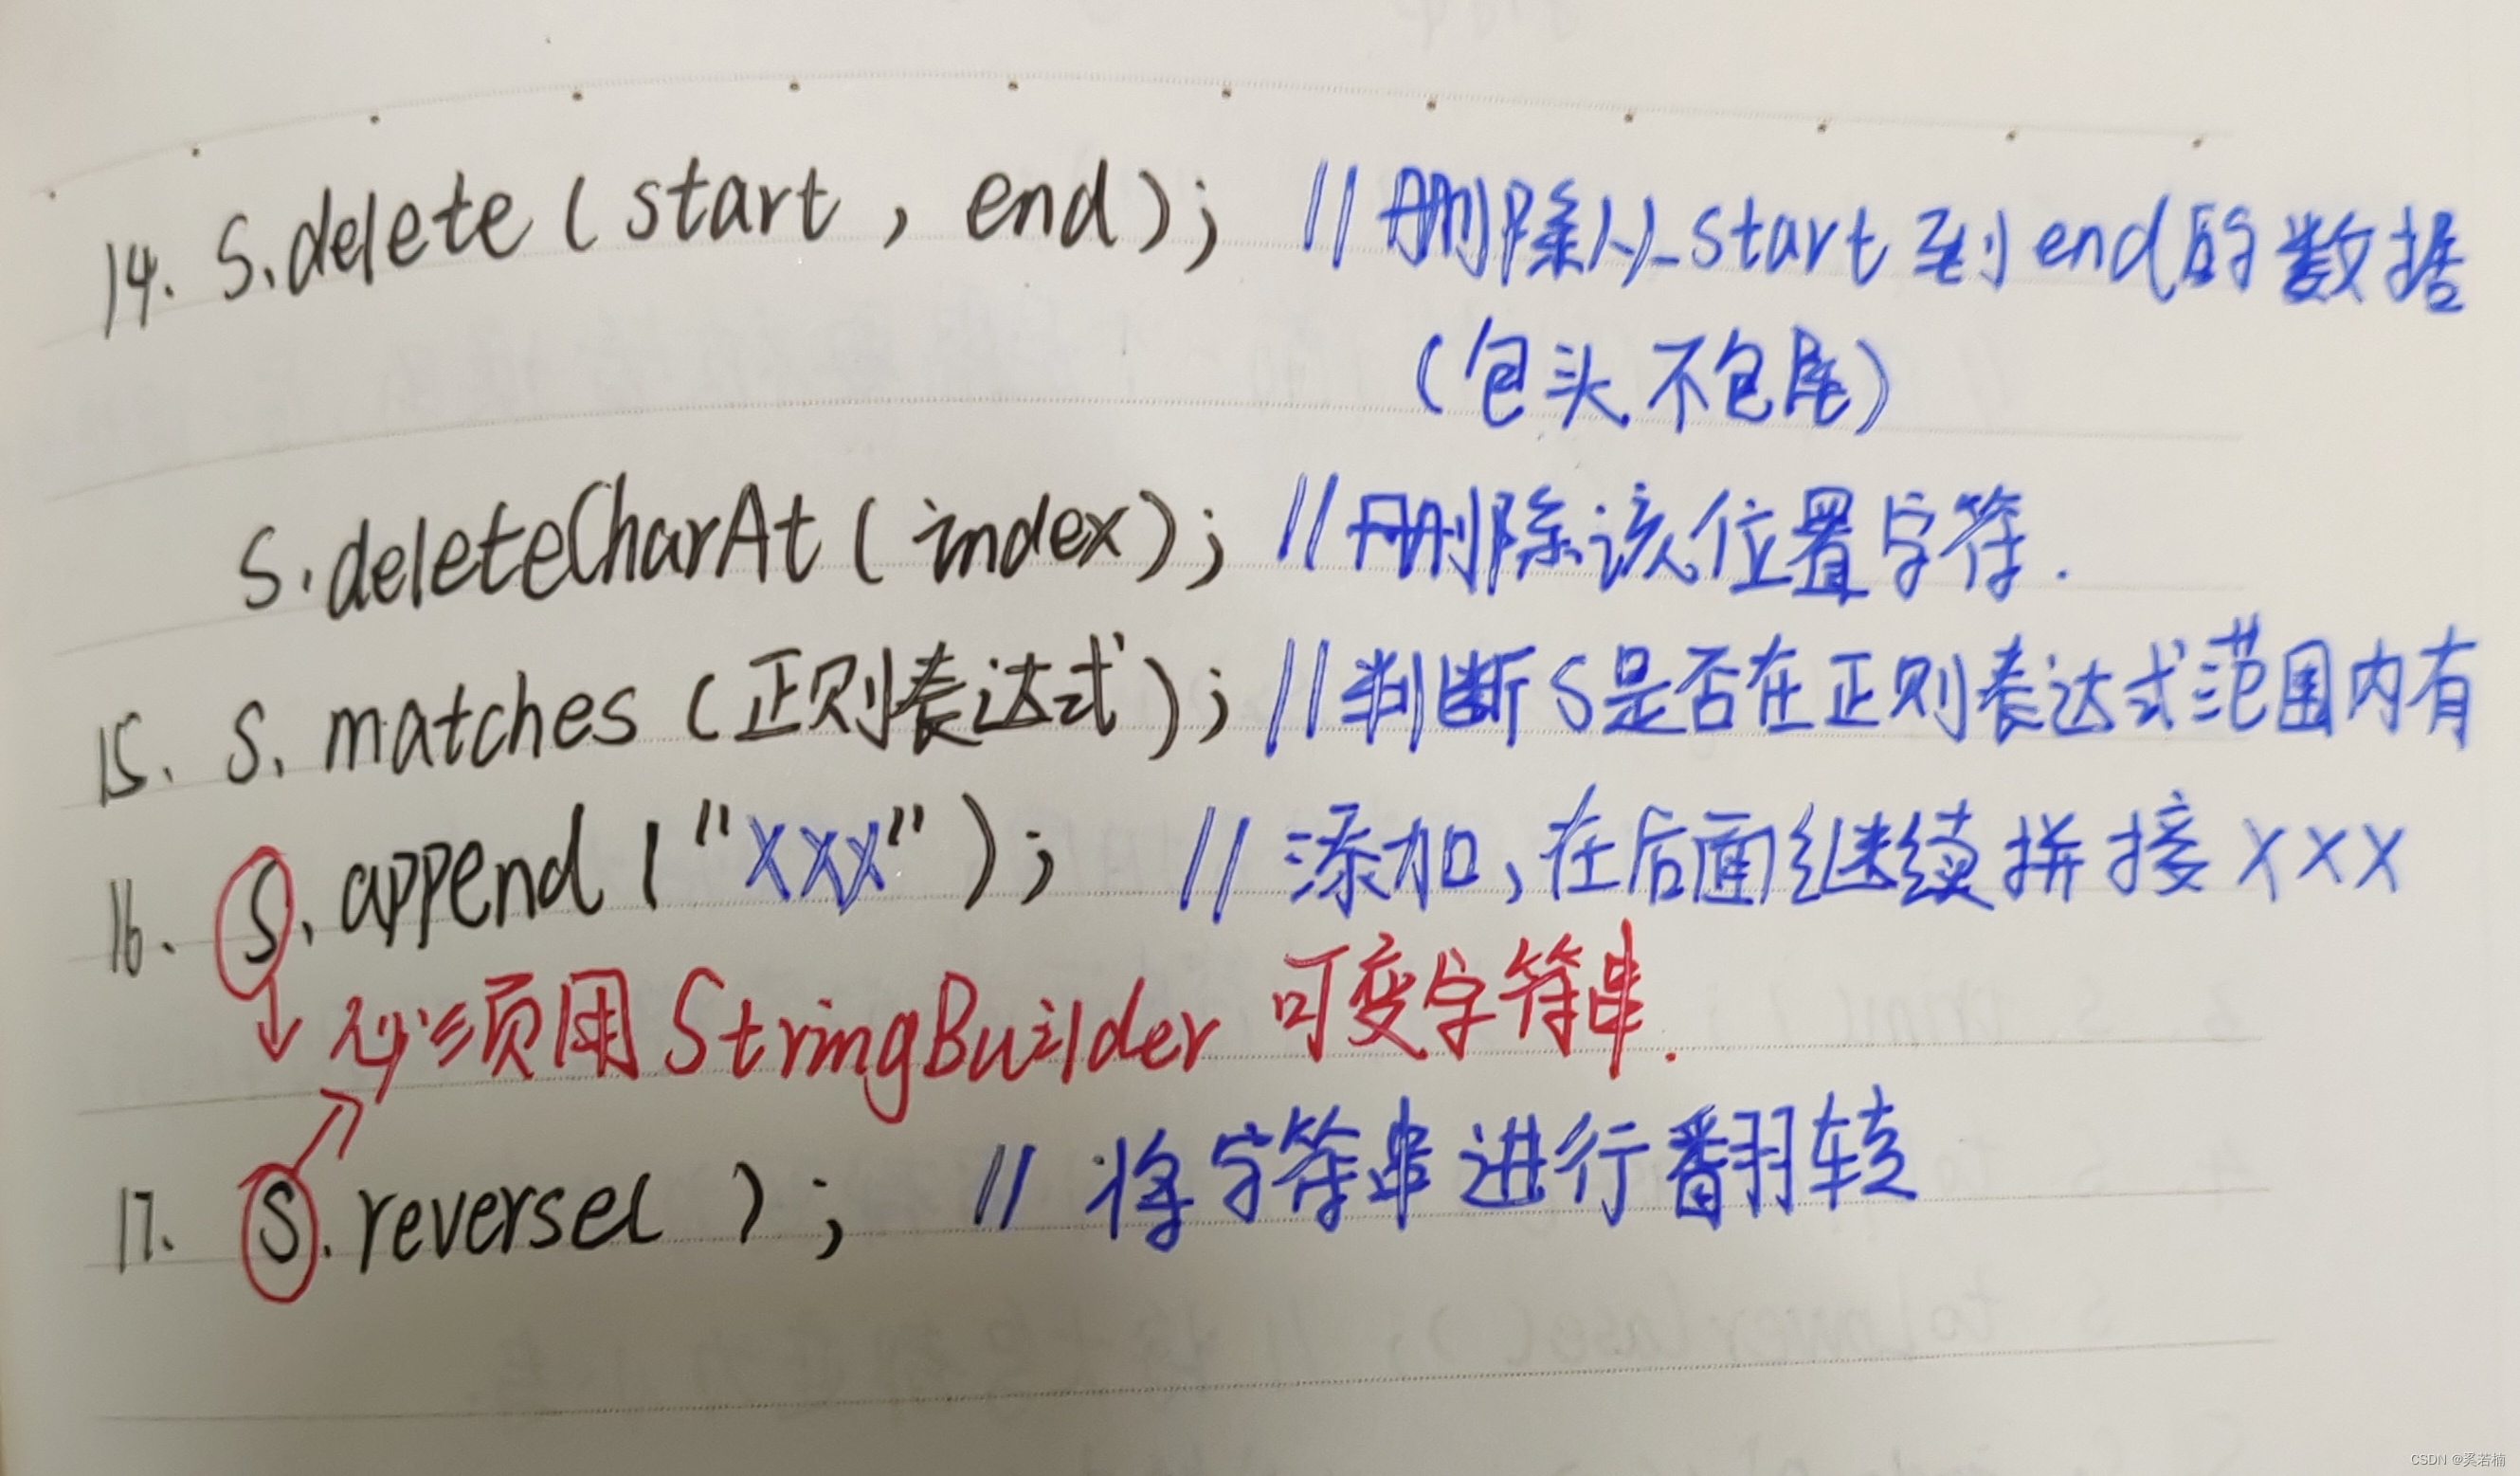 14. S.delete(start, end); //删除从start到end的数据
(包头不包尾)
S.deleteCharAt(index); //删除该位置字符.
15. S.matches(正则表达式); //判断S是否在正则表达式范围内有
16. S.append("XXX"); //添加,在后面继续拼接XXX
必须用StringBuilder 可变字符串.
17. S.reverse( ); //将字符串进行翻转
CSDN @奚若楠